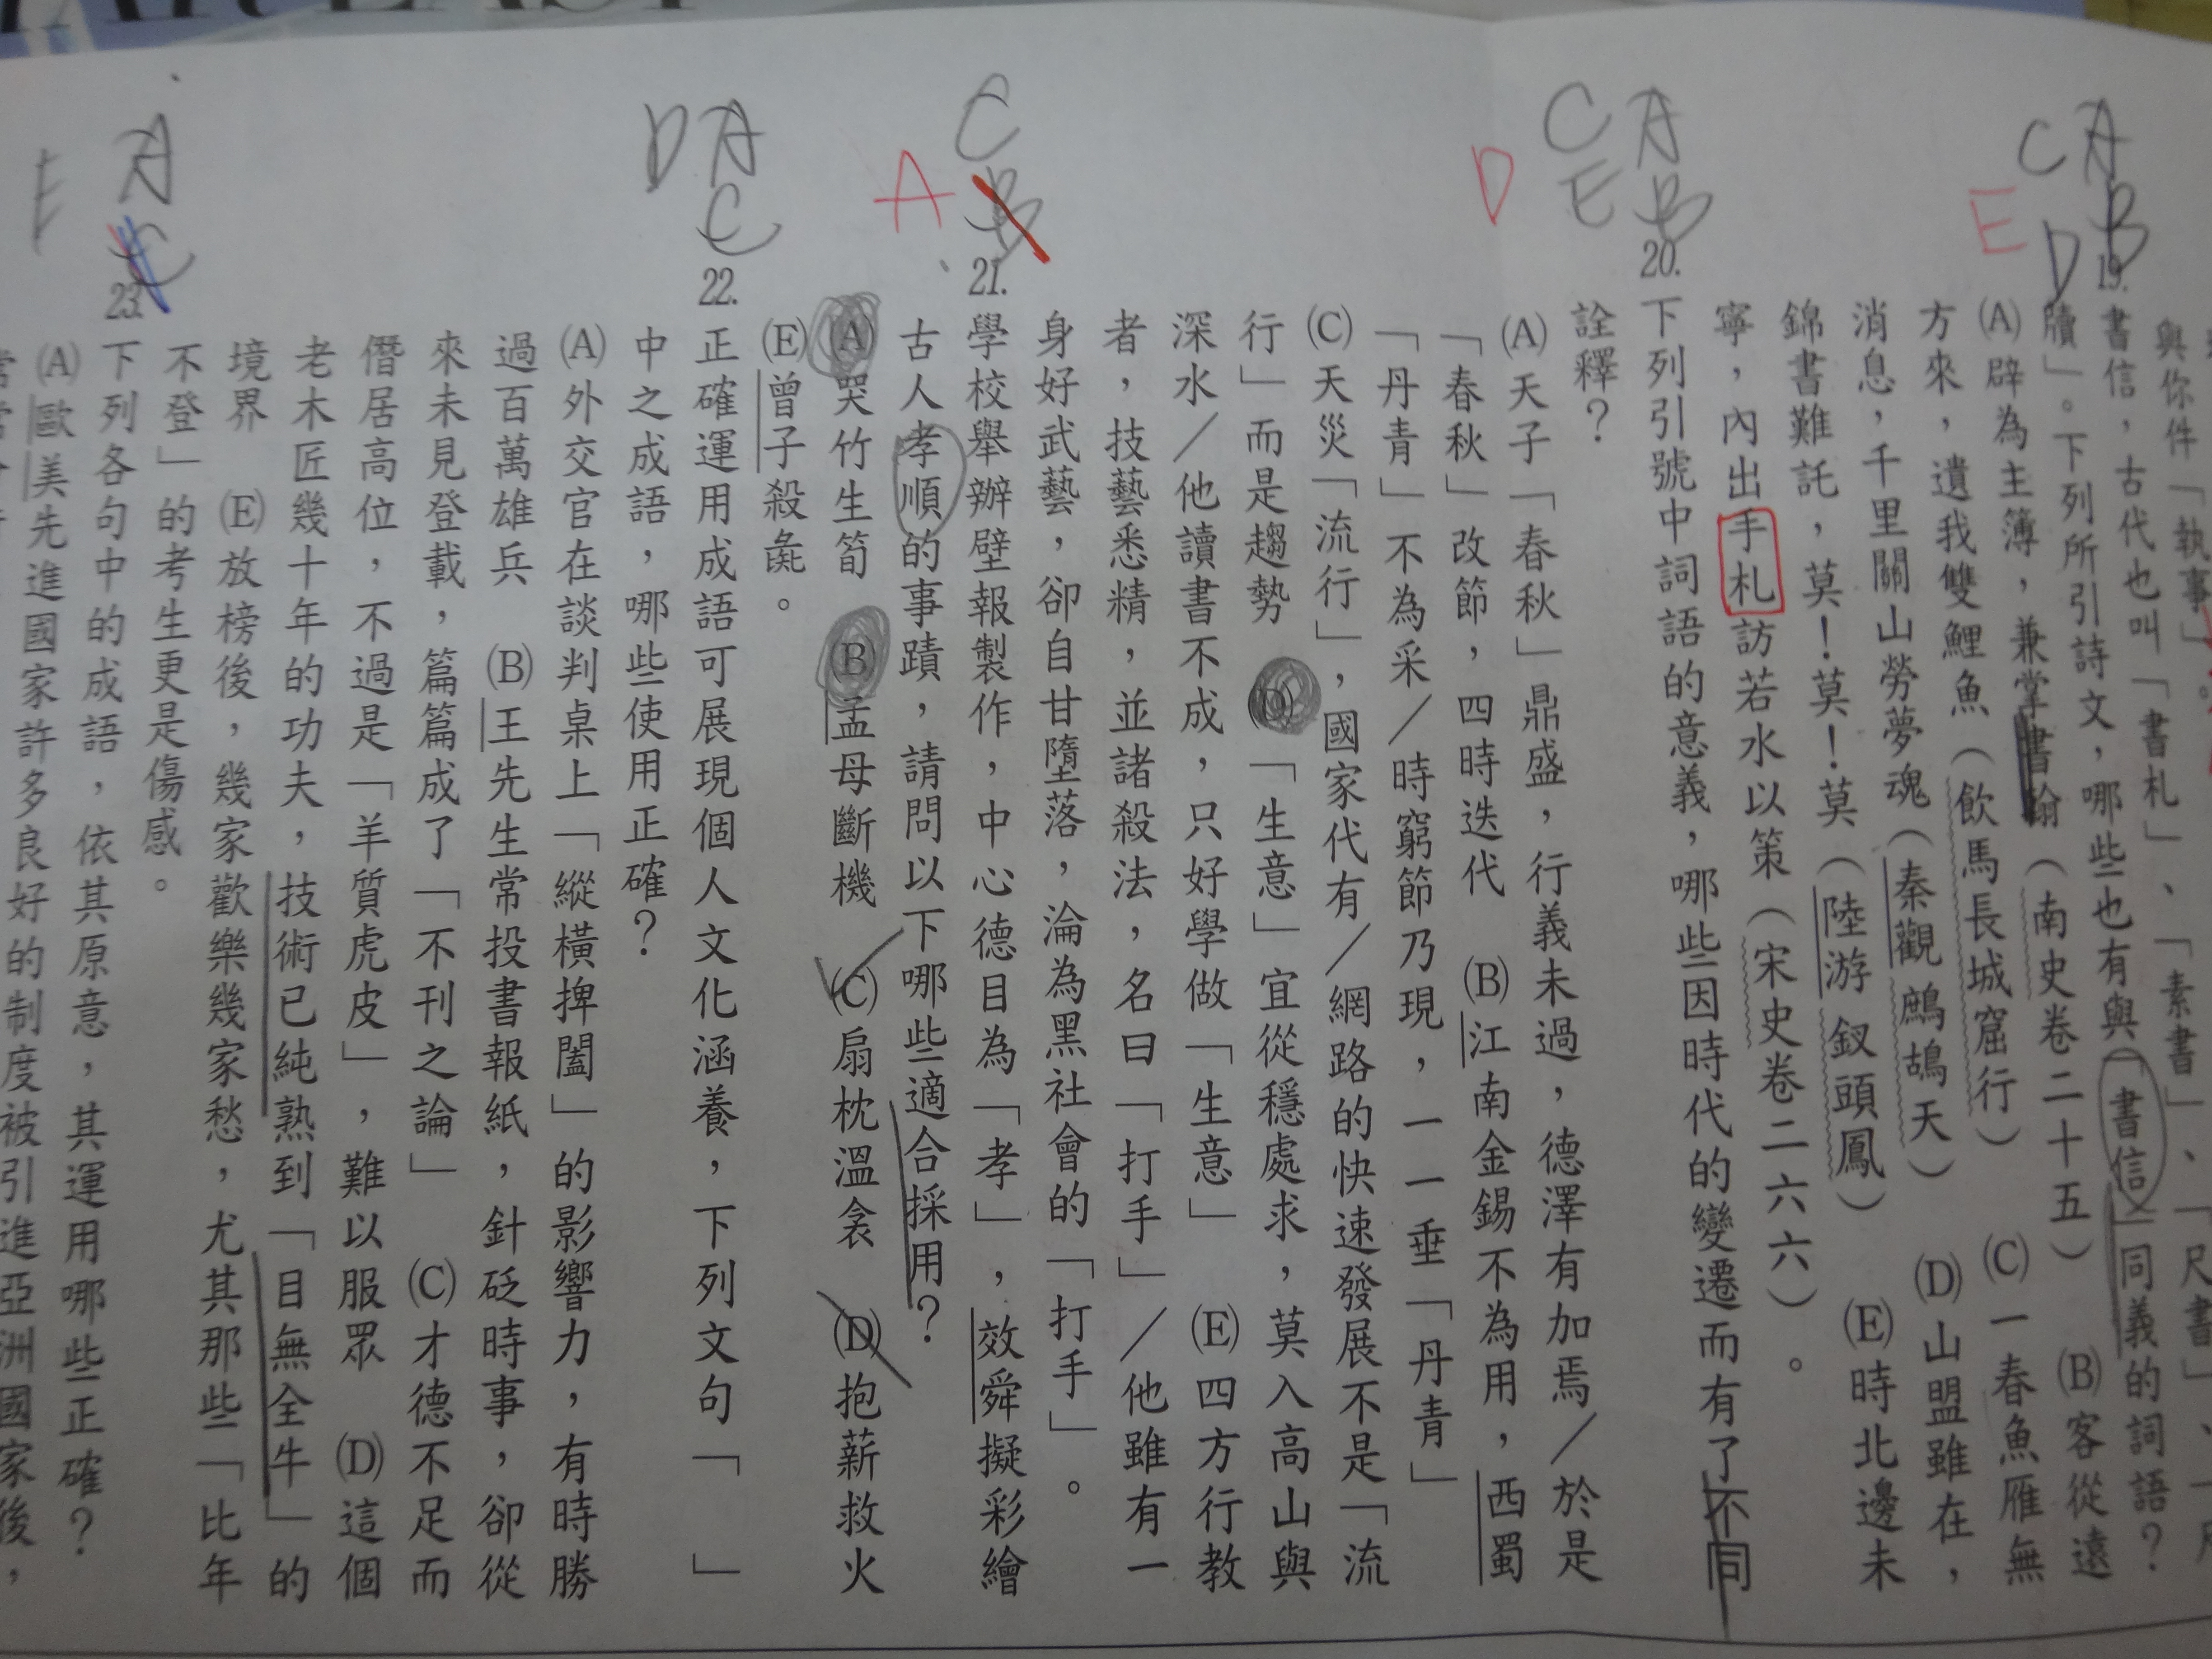 FAR EAST
與你件「執事」
19.書信，古代也叫「書札」、「素書」、「尺書」、
牘」。下列所引詩文，哪些也有與「書信」同義的詞語？
(A)辟為主簿，兼掌書翰（南史卷二十五） (B)客從遠
方來，遺我雙鯉魚（飲馬長城窟行） (C)一春魚雁無
消息，千里關山勞夢魂（秦觀 鷓鴣天） (D)山盟雖在，
錦書難託，莫！莫！莫（陸游 釵頭鳳） (E)時北邊未
寧，內出手札訪若水以策（宋史卷二六六）。
20.下列引號中詞語的意義，哪些因時代的變遷而有了不同
詮釋？
(A)天子「春秋」鼎盛，行義未過，德澤有加焉／於是
「春秋」改節，四時迭代 (B)江南金錫不為用，西蜀
「丹青」不為采／時窮節乃現，一一垂「丹青」
(C)天災「流行」，國家代有／網路的快速發展不是「流
行」而是趨勢 (D)「生意」宜從穩處求，莫入高山與
深水／他讀書不成，只好學做「生意」 (E)四方行教
者，技藝悉精，並諸殺法，名曰「打手」／他雖有一
身好武藝，卻自甘墮落，淪為黑社會的「打手」。
21.學校舉辦壁報製作，中心德目為「孝」，效舜擬彩繪
古人孝順的事蹟，請問以下哪些適合採用？
(A)哭竹生筍 (B)孟母斷機 (C)扇枕溫衾 (D)抱薪救火
(E)曾子殺彘。
22.正確運用成語可展現個人文化涵養，下列文句「 」
中之成語，哪些使用正確？
(A)外交官在談判桌上「縱橫捭闔」的影響力，有時勝
過百萬雄兵 (B)王先生常投書報紙，針砭時事，卻從
來未見登載，篇篇成了「不刊之論」 (C)才德不足而
僭居高位，不過是「羊質虎皮」，難以服眾 (D)這個
老木匠幾十年的功夫，技術已純熟到「目無全牛」的
境界 (E)放榜後，幾家歡樂幾家愁，尤其那些「比年
不登」的考生更是傷感。
23.下列各句中的成語，依其原意，其運用哪些正確？
(A)歐美先進國家許多良好的制度被引進亞洲國家後，
A
B
C
D
E
A
B
C
E
D
C
B
A
A
C
D
A
C
E